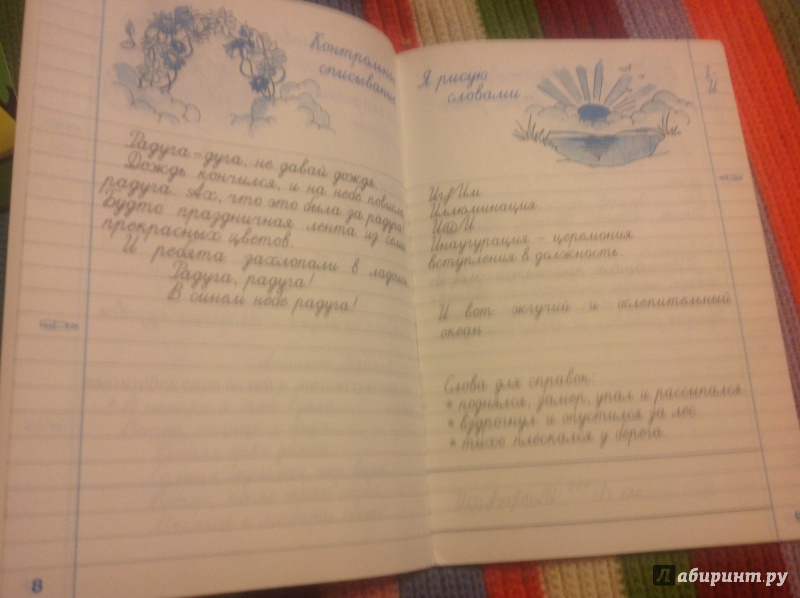 Контрольн
списывани
Радуга-дуга, не давай дождь,
Дождь кончился, и на небе повисла
радуга. Ах, что это была за радуга!
Будто праздничная лента из семи
прекрасных цветов.
И ребята захлопали в ладоши
Радуга, радуга!
В синем небе радуга!
8
Я рисую
словами...
И
Иллюминация.
Инаугурация - церемония
вступления в должность.
И вот жгучий и ослепительный
океан...
Слова для справок:
* поднялся, замер, упал и рассыпался.
* вздрогнул и опустился за лес.
* тихо плескался у берега.
Лабиринт.ру